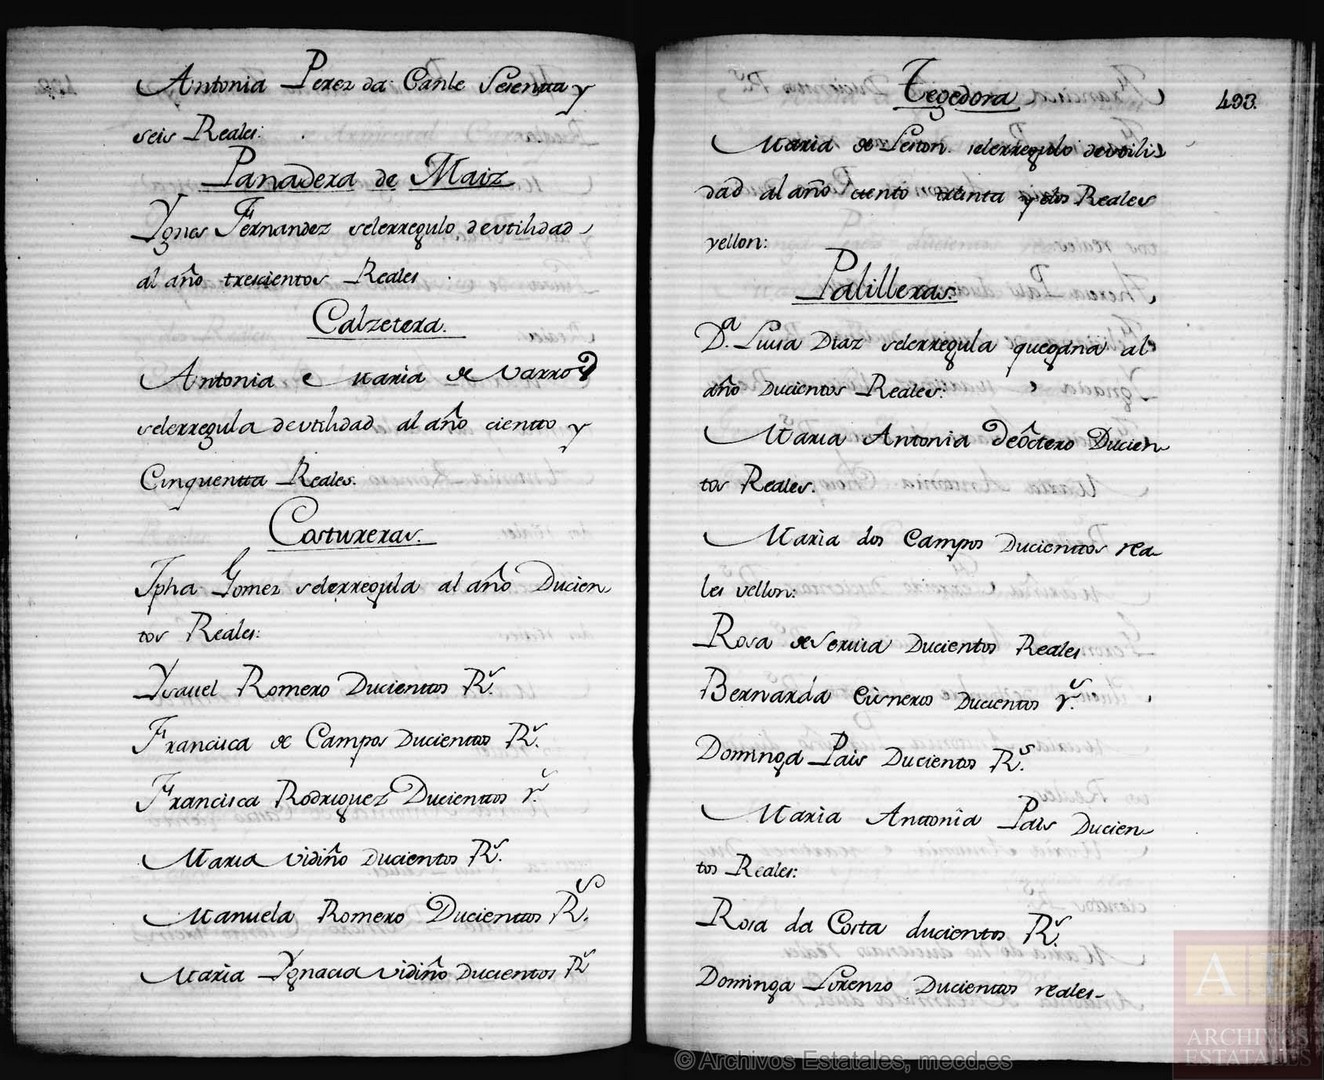 Antonia Perez da Canle Sesentta y
seis Reales:
Panadera de Maiz
Ygnes Fernandez selerregulo deutilidad
al año trescientos Reales
Calzetera.
Antonia e Maria de Navarro
selerregula deutilidad al año ciento y
Cinquentta Reales.
Costureras.
Jpha Gomez selerregula al año Ducien
tos Reales:
Ysauel Romero Ducientos Rs.
Francisca de Campos Ducientos Rs.
Francisca Rodriguez Ducientos rs.
Maria Vidiño Ducientos Rs.
Manuela Romero Ducientos Rs.
Maria Ygnacia Vidiño Ducientos Rs
493.
Tegedora
Maria de Leston selerregulo deutili
dad al año ciento treinta y dos Reales
vellon:
Palilleras.
Da. Luisa Diaz selerregula quegana al
año Ducientos Reales:
Maria Antonia de Octero Ducien
tos Reales.
Maria dos Campos Ducientos rea
les vellon:
Rosa de Seruia Ducientos Reales
Bernarda Cisneros Ducientos rs.
Dominga Pais Ducientos Rs.
Maria Antonia Pais Ducien
tos Reales:
Rosa da Costa ducientos Rs.
Dominga Lorenzo Ducientos reales
A E
ARCHIVOS
ESTATALES
© Archivos Estatales, mecd.es